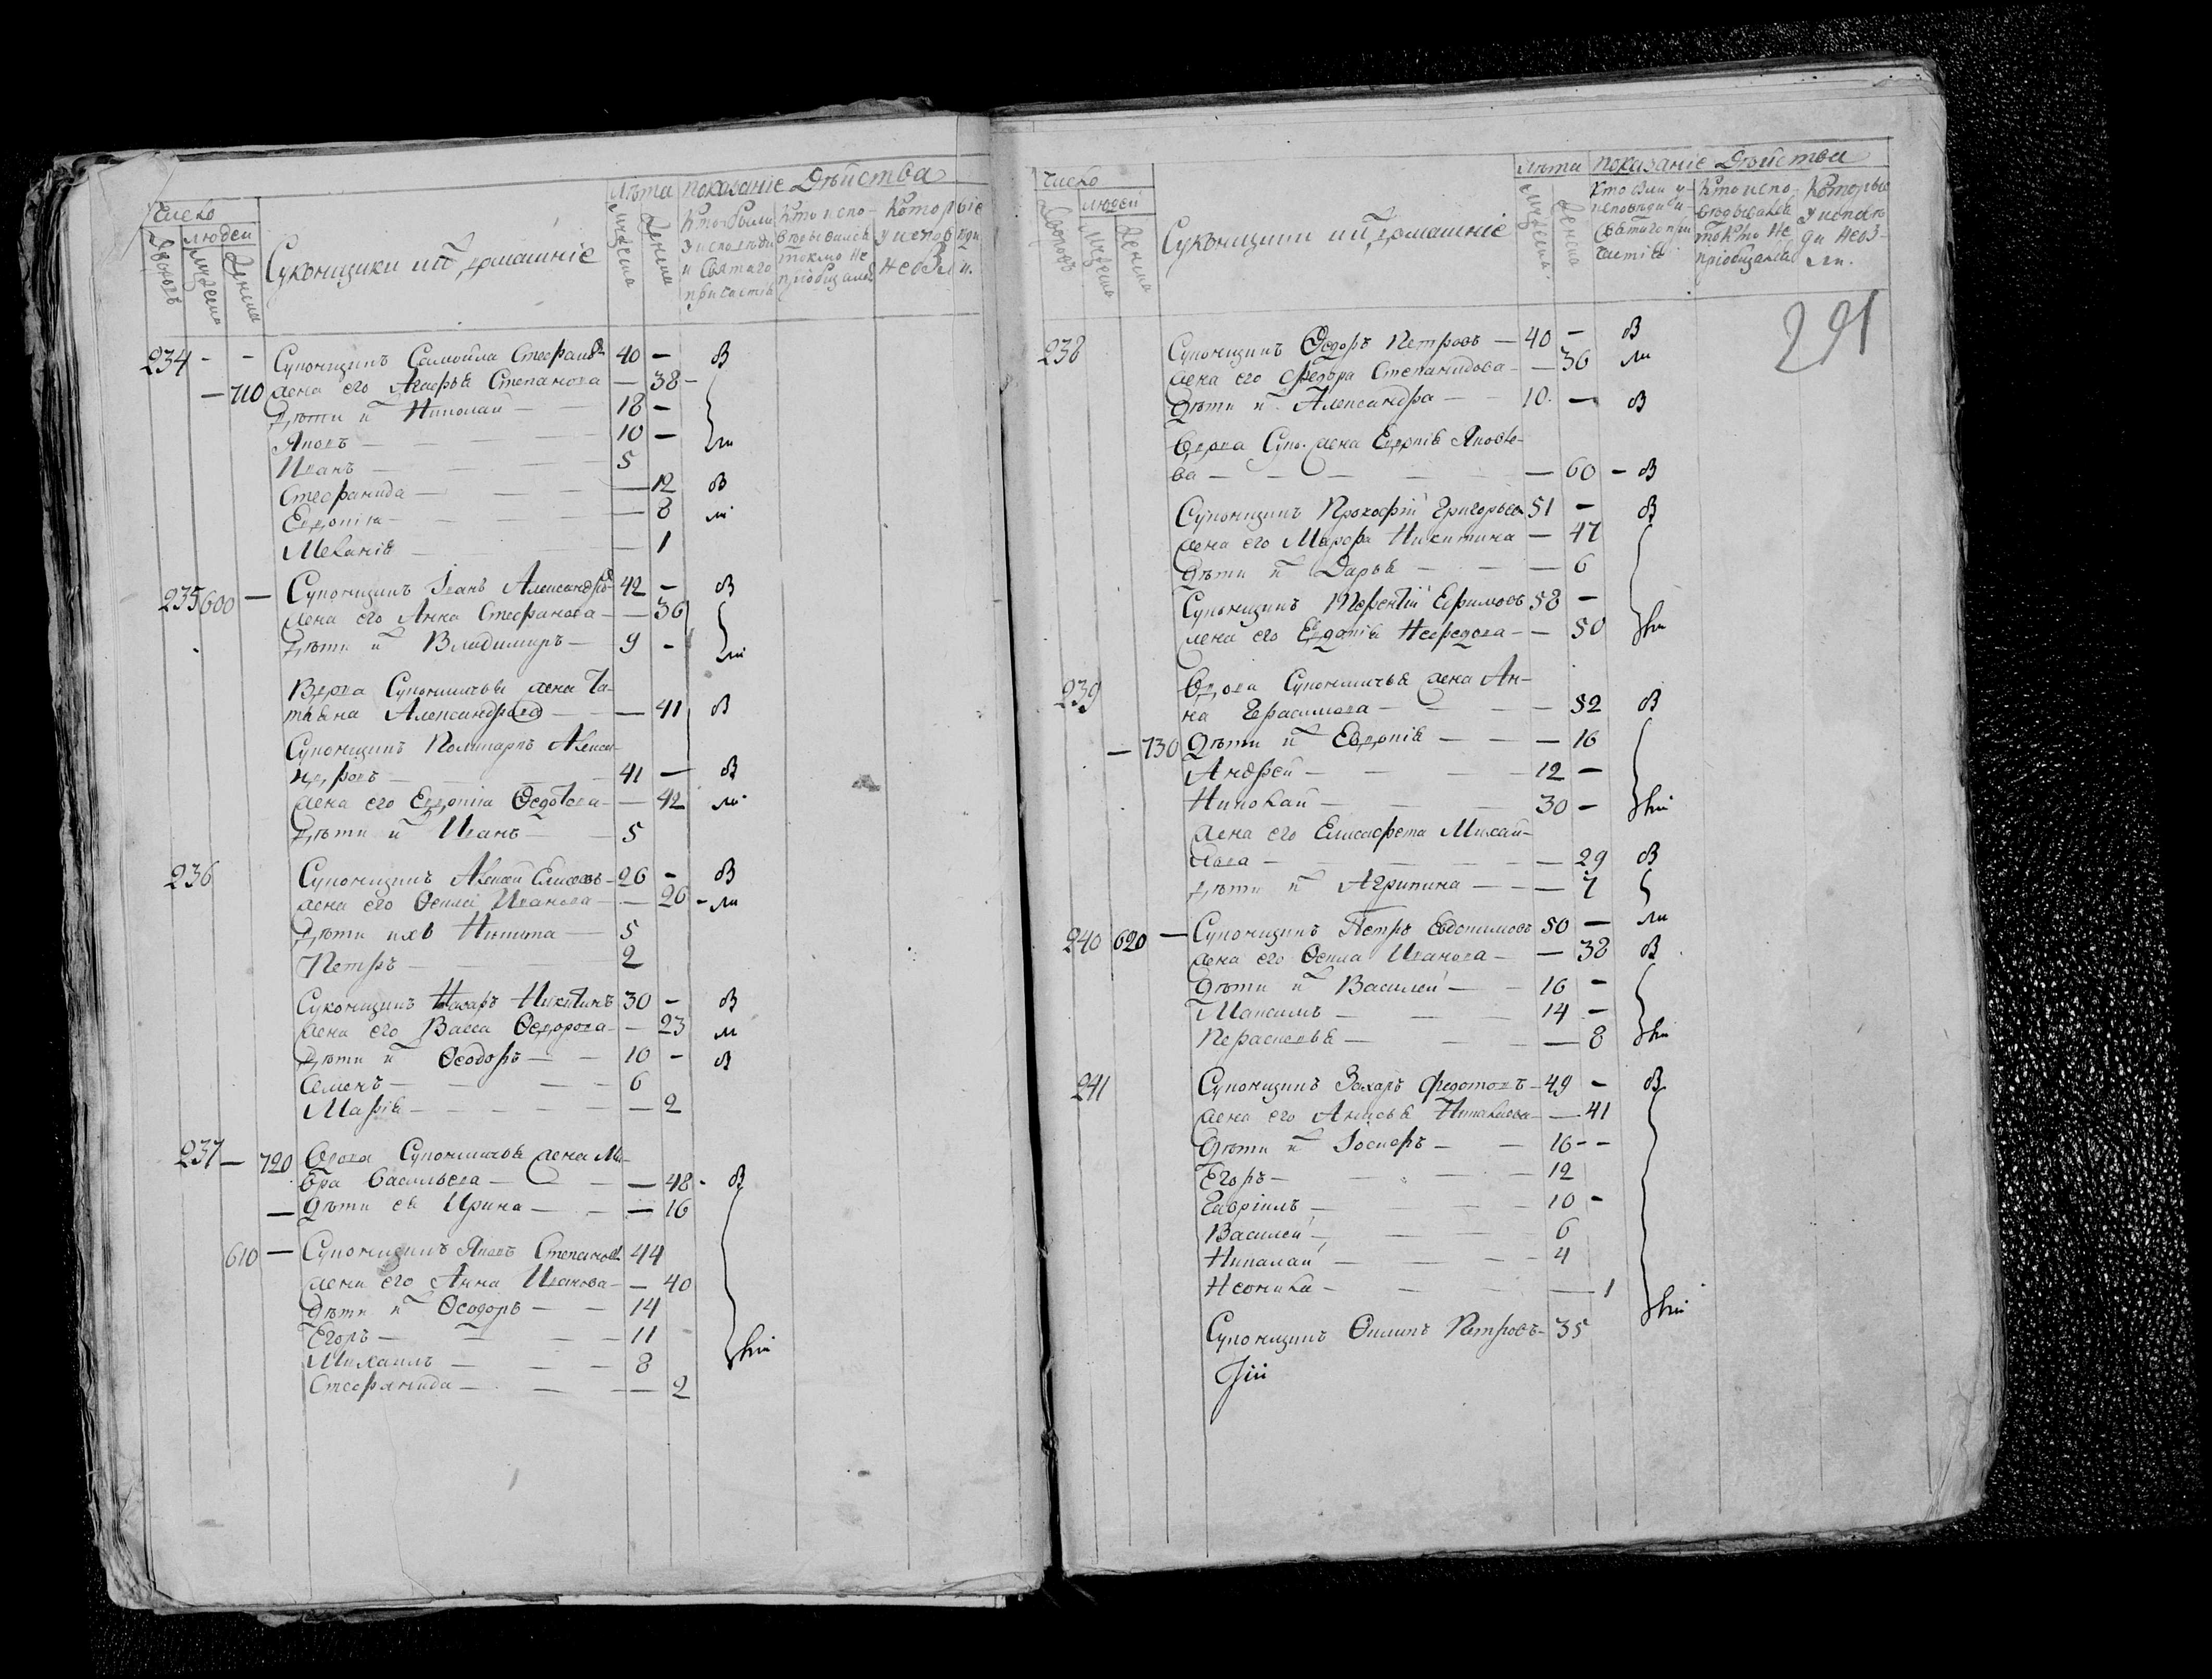 число
людей
Дворовъ
мужеска
женска
Суконщики и ихъ домашніе
лѣта
мужеска
женска
показаніе Дѣйства
Кто были
у исповѣди
и Святаго
причастія
Кто испо-
вѣдывался
токмо не
пріобщался
Которые
у исповѣди
не были.
234 - - Суконщикъ Самойла Стефановъ 40 — В
— 710 жена его Агафья Степанова — 38 -
дѣти ихъ Николай — 18 —
Яковъ — 10 — ли
Иванъ — 5
Стефанида — — 12 В
Евдокія — — 8 ли
Меланія — — 1
235 600 — Суконщикъ Іванъ Александровъ 42 — В
жена его Анна Стефанова — — 36
дѣти ихъ Владимиръ — 9 - ли
Вдова Суконшичья жена Та-
тьяна Александрова — — 41 В
Суконщикъ Поликарпъ Алекса-
ндровъ — 41 — В
жена его Евдокія Федотова — — 42 ли
дѣти ихъ Иванъ — 5
236 Суконщикъ Алексей Елисеевъ - 26 - В
жена его Фекла Иванова — — 26 - ли
дѣти ихъ Никита — 5
Петръ — 2
Суконщикъ Назаръ Никитинъ 30 - В
жена его Васса Федорова — — 23 ли
дѣти ихъ Феодоръ — 10 - В
Семенъ — 6
Марія — — 2
237 — 720 Вдова Суконшичья жена Ма-
вра Васильева — — 48 - В
— дѣти ея Ирина — — 16
610 — Суконщикъ Яковъ Степановъ 44
жена его Анна Иванова — — 40
дѣти ихъ Феодоръ — 14
Егоръ — 11
Михаилъ — 8 ли
Стефанида — — 2
число
людей
Дворовъ
мужеска
женска
Суконщики и ихъ домашніе
лѣта
мужеска
женска
показаніе Дѣйства
Кто были у
исповѣди и
Святаго при
частія
Кто испо-
вѣдывался
токмо не
пріобщался
Которые
у исповѣ
ди не бы-
ли.
291
238 Суконщикъ Федоръ Петровъ — 40 — В
жена его Федора Степанидова — — 36 ли
дѣти ихъ Александра — 10. — В
Вдова Сук. жена Евдокія Яковле-
ва — — 60 - В
Суконщикъ Прокофій Григорьевъ 51 — В
жена его Марфа Никитина — 47
дѣти ихъ Дарья — — 6
Суконщикъ Терентій Ефимовъ 58 —
жена его Евдокія Нефедова — — 50 ли
239 Вдова Суконшичья жена Ан-
на Герасимова — — 52 В
— 730 дѣти ихъ Евдокія — — 16
Андрей — 12 —
Николай — 30 — ли
жена его Елисавета Михай-
лова — — 29 В
дѣти ихъ Агрипина — — 7
240 620 — Суконщикъ Петръ Евдокимовъ 50 — ли
жена его Фекла Иванова — — 38 В
дѣти ихъ Василей — 16 -
Максимъ — 14 —
Парасковья — — 8 ли
241 Суконщикъ Захаръ Федотовъ — 49 - В
жена его Анисья Николаева — — 41
дѣти ихъ Іосифъ — 16 - -
Егоръ — 12
Гавріилъ — 10 -
Василей — 6
Николай — 4
Неонила — — 1 ли
Суконщикъ Филипъ Петровъ — 35